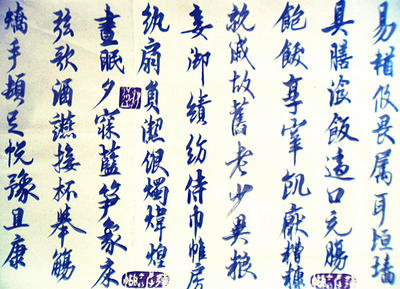 易輶攸畏属耳垣墻
具膳湌飯適口充腸
飽飫享宰飢厭糟糠
親戚故舊老少異粮
妾御績紡侍巾帷房
紈扇員潔銀燭煒煌
晝眠夕寐藍笋象床
弦歌酒讌接杯舉觴
矯手頓足悅豫且康